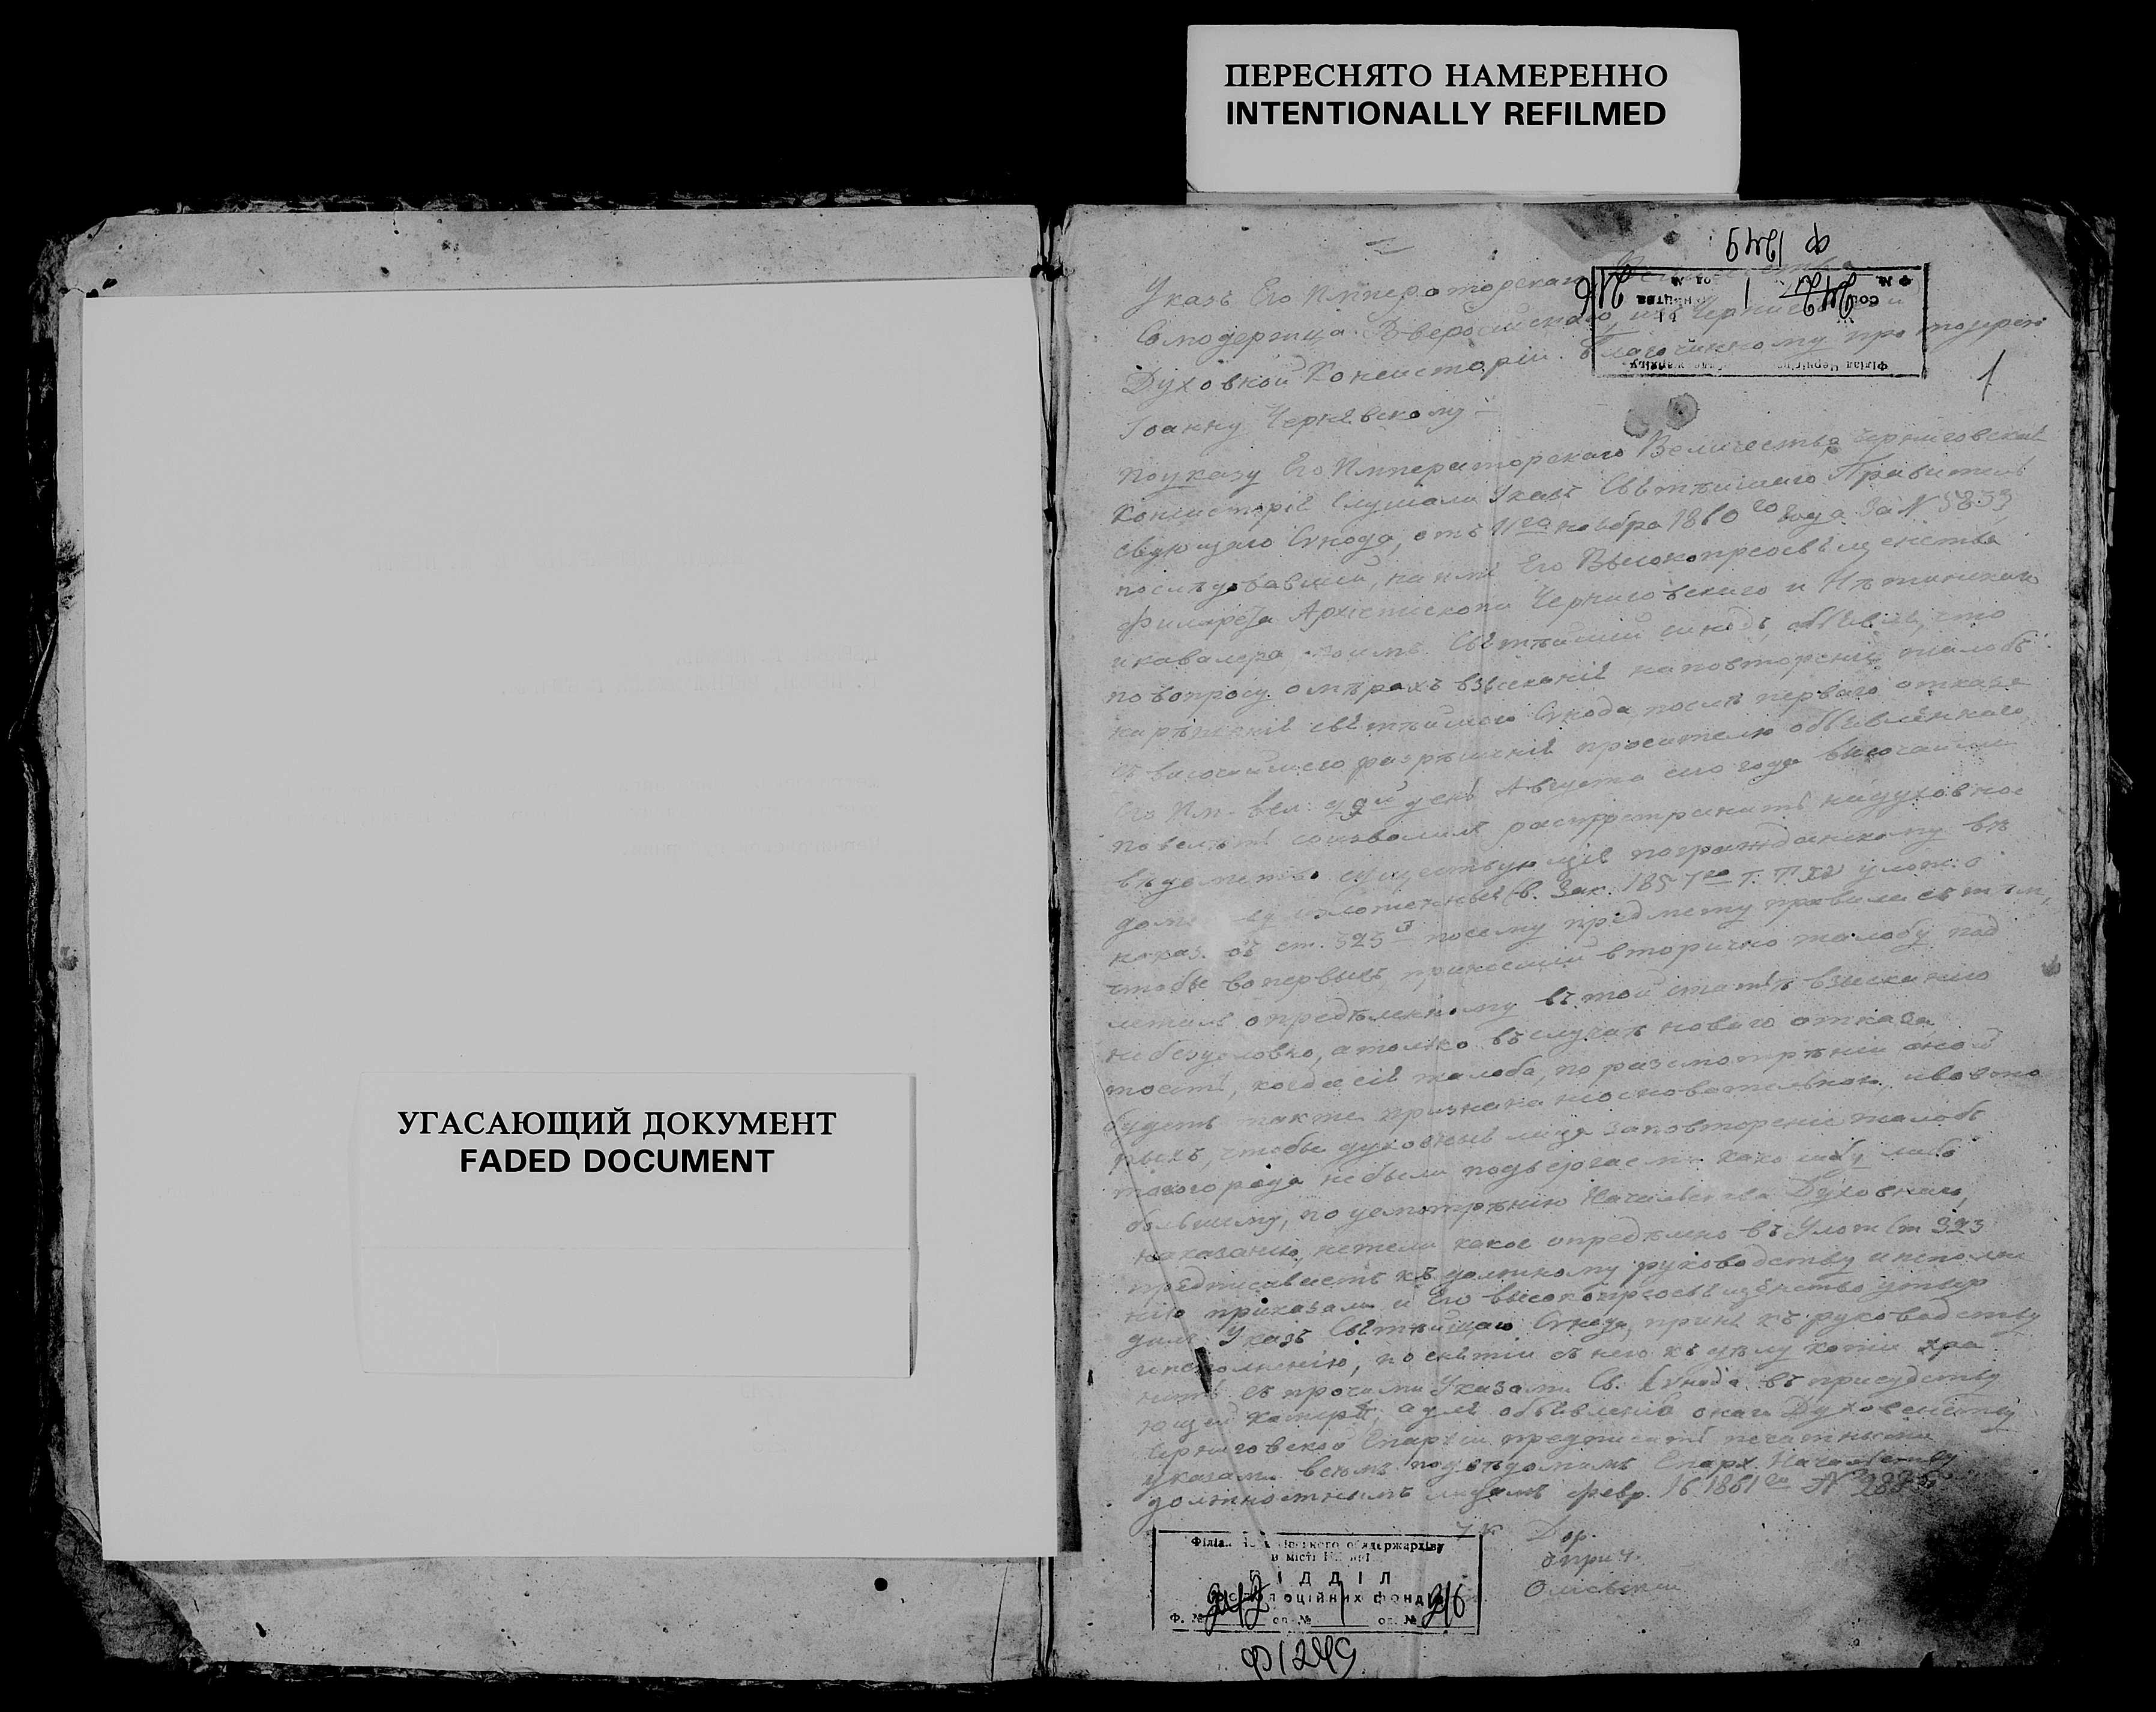 ПЕРЕСНЯТО НАМЕРЕННО
INTENTIONALLY REFILMED
УГАСАЮЩИЙ ДОКУМЕНТ
FADED DOCUMENT
Ф 1249
1
Указъ Его Императорскаго
Самодержца Всеросийскаго, изъ
Духовной Консисторіи Благочинному
Іоанну Чернявскому
По указу Его Императорскаго Величества, Черниговская
Консисторія слушали Указъ Святѣйшаго Правитель
ствующаго Синода, отъ 11го ноября 1860го года за N 5839
послѣдовавший, на имя Его Высокопреосвященства
Филарета Архіепископа Черниговскаго и Нѣжинскаго
и кавалера коимъ Святѣйший синодъ, объявляя, что
по вопросу о мѣрахъ взысканія за повтореніе жалобъ
на рѣшенія святѣйшаго Синода после перваго отказа
просителю объявленнаго
день Августа сего года высочайше
повелѣть соизволилъ распространить на духовное
вѣдомство существующія по гражданскому вѣ
Св. Зак. 1857го Т. XV улож. о
наказ. въ ст. 323й по сему предмету правила съ тѣм,
чтобы вопервыхъ, принесший вторично жалобу под
лежалъ опредѣленному въ той статьѣ взысканію
не безусловно, а только въ случаѣ новаго отказа,
тоесть, когда сія жалоба, по разсмотрѣніи оной
будетъ также признана неосновательною, и вовто
рыхъ, чтобы духовныя лица за повтореніе жалобъ
такого рода не были подвергаемы какому либо
большему, по усмотрѣнію Начальства Духовнаго,
наказанію, нежели какое опредѣлено въ Улож. Ст 323
предписываетъ къ должному руководству и исполне
нію приказали и Его высокопреосвященство утвер
дилъ: Указъ Святѣйшаго Синода, принявъ къ руководству
и исполненію, по снятіи съ него къ дѣлу копіи хра
нить съ прочими Указами Св. Синода въ присудству
ющей камерѣ, а для объявленія онаго Духовенству
Черниговской Епархіи предписать печатными
указами всемъ подвѣдомымъ Епарх. Начальству
должностнымъ лицамъ февр. 16 1861го N
в місті
ВІДДІЛ
фондів
Ф. № 242 оп. № 1 од. № 216
Ф 1249